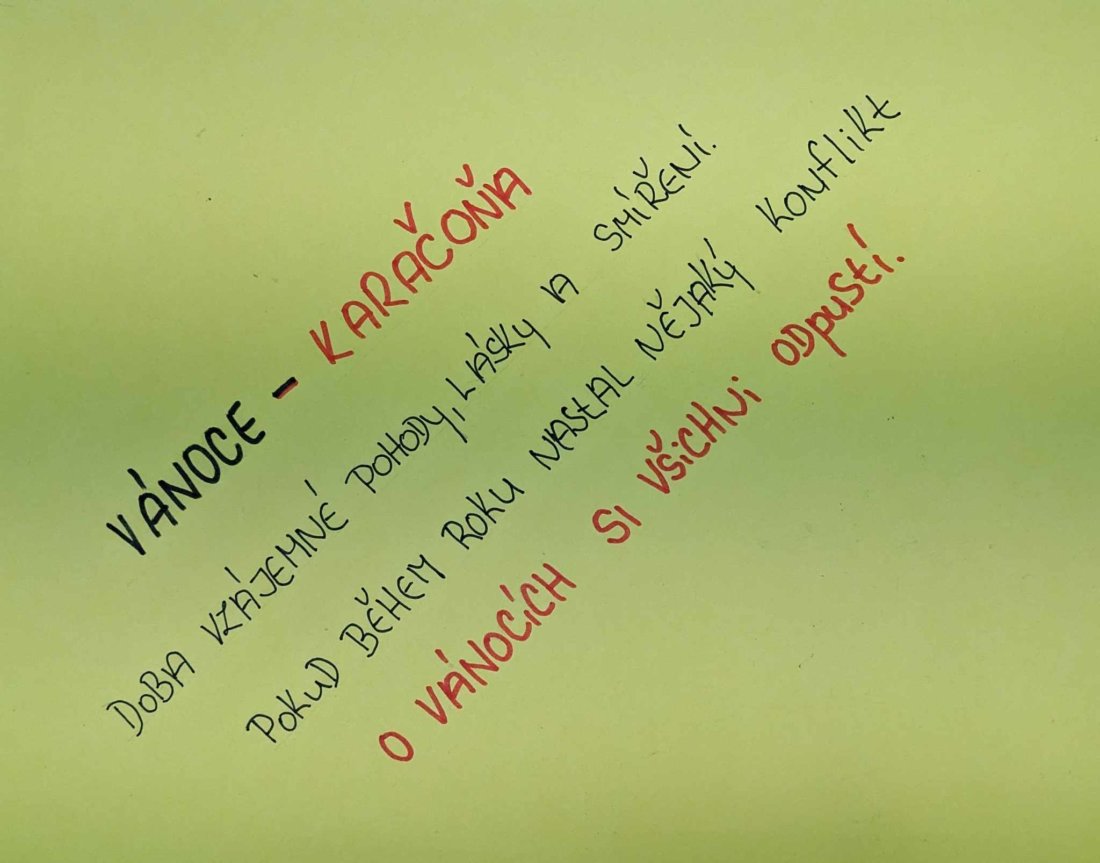 VÁNOCE - KARAČOŇA
DOBA VZÁJEMNÉ POHODY, LÁSKY A SMÍŘENÍ.
POKUD BĚHEM ROKU NASTAL NĚJAKÝ KONFLIKT
O VÁNOCÍCH SI VŠICHNI ODPUSTÍ.